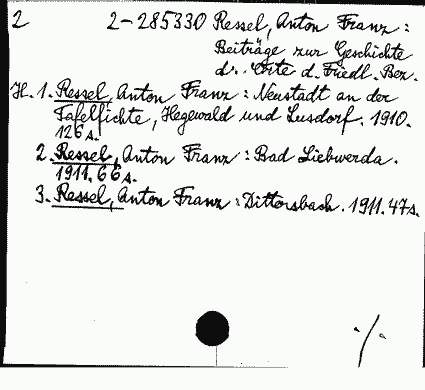 2 2-285330 Ressel, Anton Franz:
Beiträge zur Geschichte
d. Orte d. Friedl. Bez.
H. 1. Ressel, Anton Franz: Neustadt an der
Tafelfichte, Hegewald und Lusdorf. 1910.
126 s.
2. Ressel, Anton Franz: Bad Liebwerda.
1911. 66 s.
3. Ressel, Anton Franz: Dittersbach. 1911. 47 s.
./.